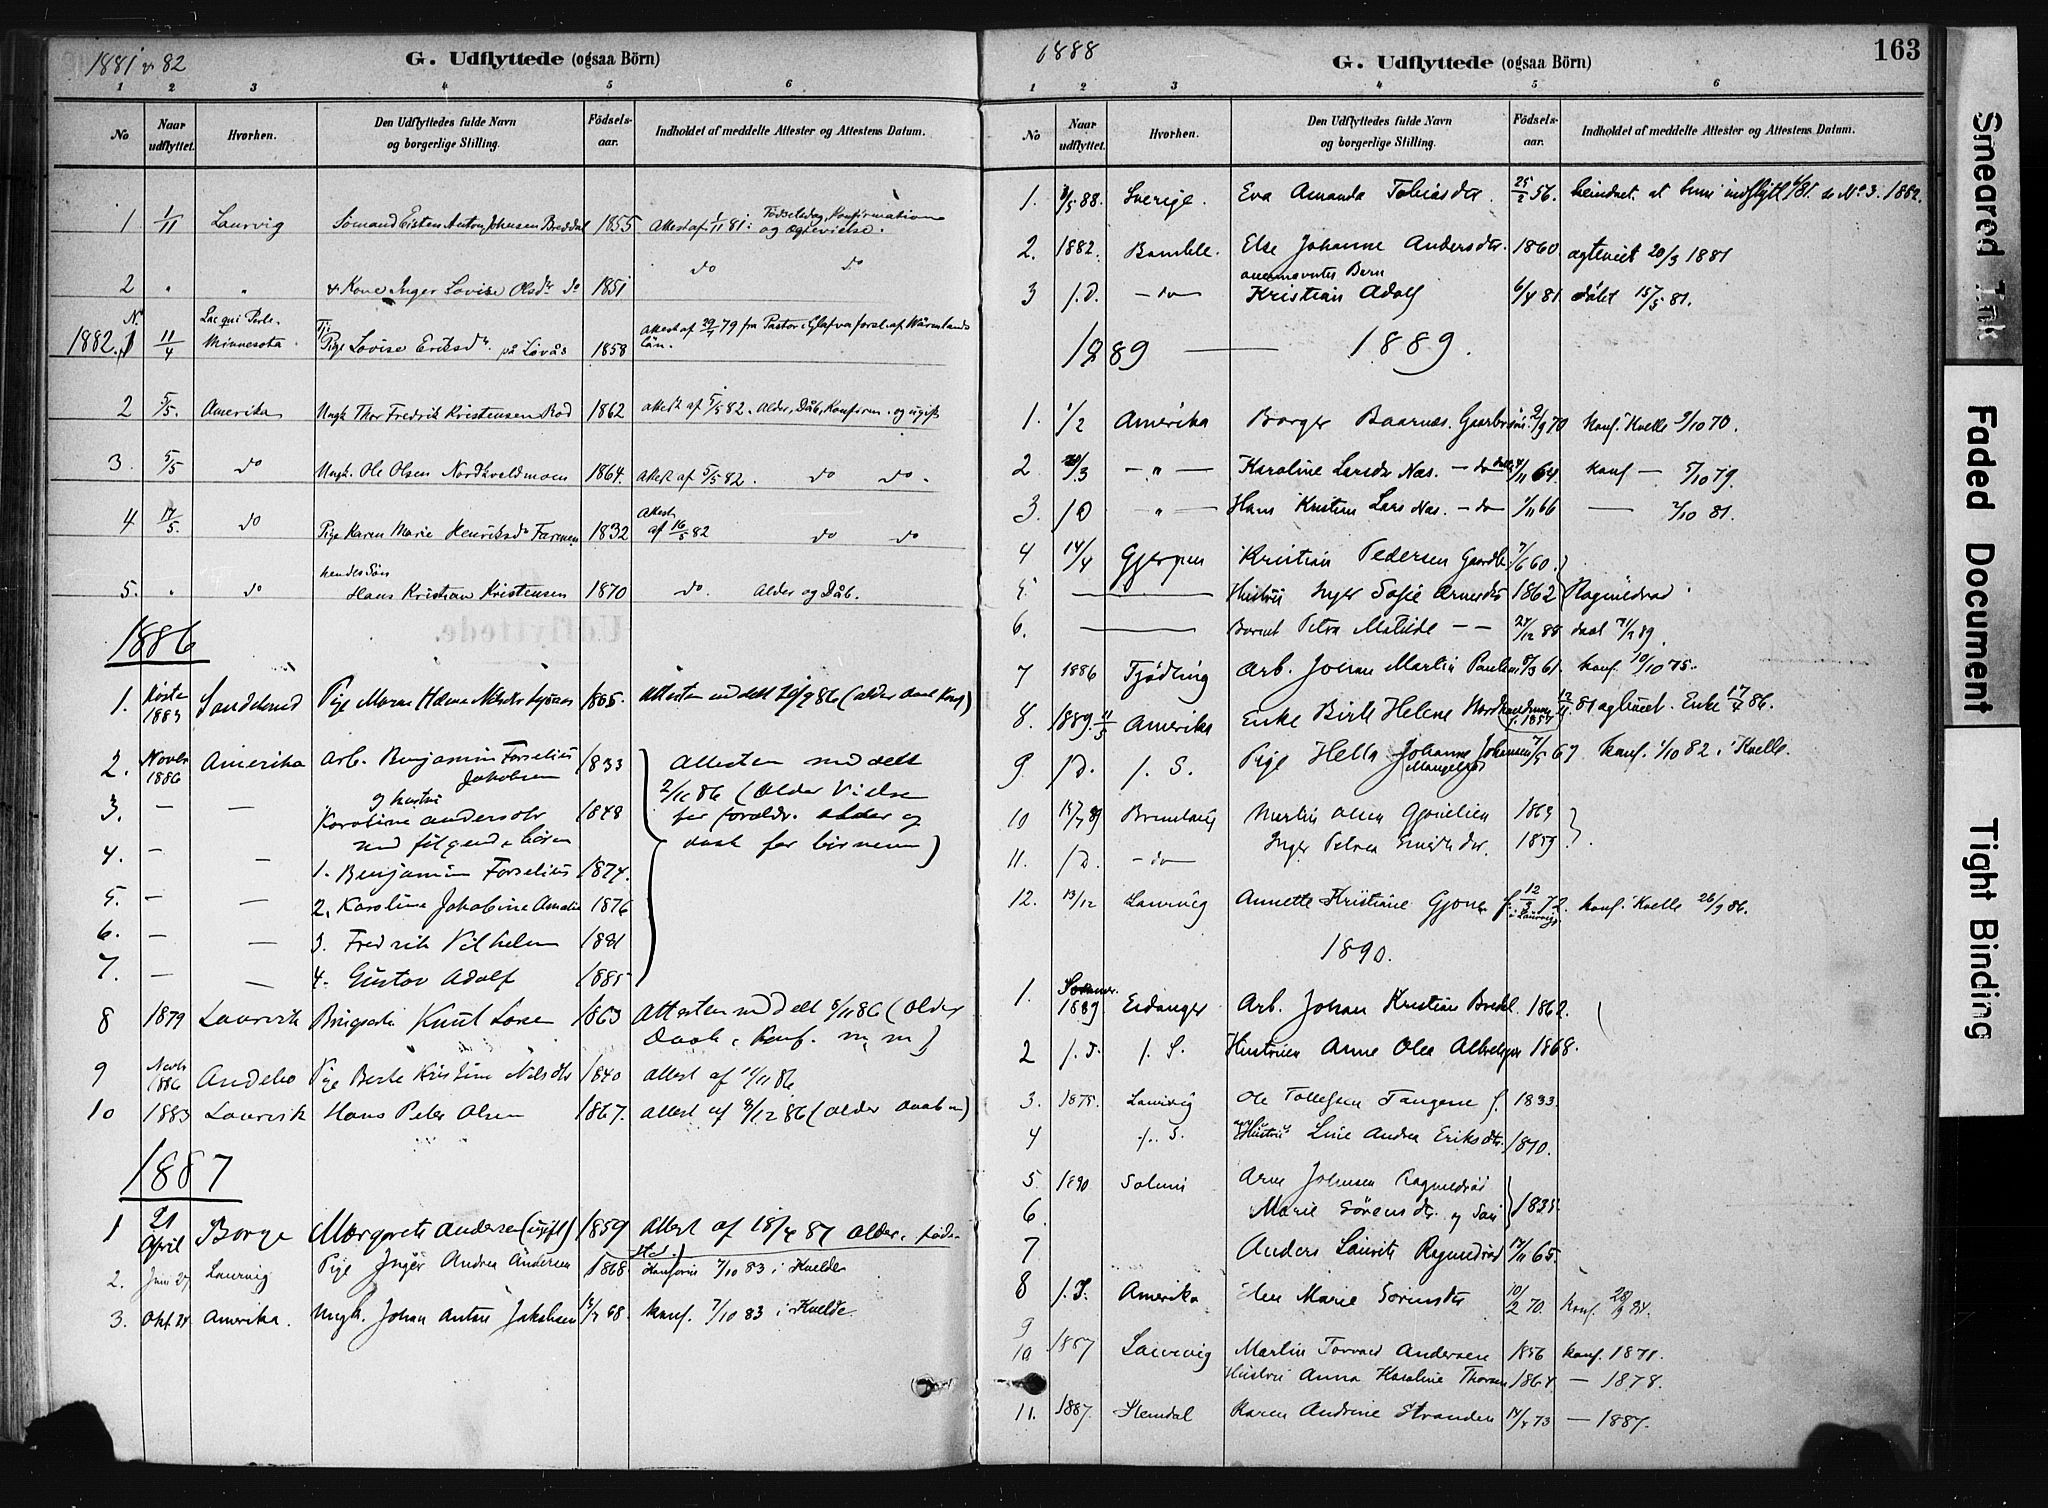 1881 & 82
G. Udflyttede (ogsaa Börn)
1 2 3 4 5 6
No Naar udflyttet. Hvorhen. Den Udflyttedes fulde Navn og borgerlige Stilling. Födsels-aar. Indholdet af meddelte Attester og Attestens Datum.
1 1/11 Laurvig Sömand Eisten Anton Johnsen Breddal 1855 Attest af 1/11 81: Födselsdag, Konfirmation og Ægtevielse.
2 " " & Kone Inger Lovise Olsdr do 1851 do do
1882. N. 1 11/4 Lac qui Parle Minnesota Tj. Pige Lovise Eriksdr på Løvås 1858 Attest af 29/4 79 fra Pastor i Glafva fors. af Wärmlands län.
2 5/5. Amerika Ungk. Thor Fredrik Kristensen Rød 1862 Attest af 5/5 82. Alder, Dåb, Konfirm. og ugift
3. 5/5 do Ungk. Ole Olsen Nordkveldmoen 1864. Attest af 5/5 82. do do.
4 17/5. do Pige Karen Marie Henriksdr Farmen 1832 Attest af 16/5 82 do do
5. " do hendes Sön Hans Kristian Kristensen 1870 do. Alder og Dåb.
1886
1. Höst 1883 Sandeherred Pige Maren Helene Nilsdr 1865. Attesten meddelt 10/9 86 (alder daab Konf)
2. Novbr 1886 Amerika Arb. Benjamin Forselius Jakobsen 1833 Attesten meddelt
3. — — og hustru Karoline Andersdtr 1848 2/11 86 (Alder Vielse for foraldr. Alder og
4. — — med fölgende børn daab for börnene)
1. Benjamin Forselius 1874.
5. — — 2. Karoline Jakobine Amalie 1876
6. — — 3. Fredrik Vilhelm 1881
7. — — 4. Gustav Adolf 1885
8 1879 Laurvik Knut Larsen 1863 Attesten meddelt 8/11 86 (Alder Daab, Konf. m, m)
9 Novbr 1886 Andebo Pige Berte Kristine Nilsdtr 1840 Attest af 11/11 86
10 1883 Laurvik Hans Peter Olsen 1867. Attest af 8/12 86 (Alder daab m)
1887
1 21 April Borge Margrete Andersen (ugift) 1859 Attest af 18/4 87 Alder. föde-sted.)
2. Juni 27 Laurvig Pige Inger Andrea Andersen 1868 Konfirm 7/10 83 i Kvelde
3. Okt. 24 Amerika. Ungk. Johan Anton Jakobsen 68 konf. 7/10 83 i Kvelde
1888
G. Udflyttede (ogsaa Börn)
163
1 2 3 4 5 6
No Naar udflyttet. Hvorhen. Den Udflyttedes fulde Navn og borgerlige Stilling. Födsels-aar. Indholdet af meddelte Attester og Attestens Datum.
1. 88. Sverige. Eva Amanda Tobiasdtr. 25/2 56. at hun indflytt 81. se No 3. 1882.
2. 1882. Bamble. Else Johanne Andersdtr. 1860. ægteviet 20/3 1881
3 f. D. — do Barn Kristian Adolf 6/4 81. döbt 15/5 81.
1889 — 1889.
1. 1/2 Amerika Borger Baarnæs. 70 konf. Kvelle 2/10 70.
2 20/3 — " — Karoline Larsdr Næs. — do 64. konf — 5/10 79.
3. f D — " — Hans Kristian Lars Næs. — do 1/11 66 — 2/10 81.
4 14/4 Gjerpen Kristian Pedersen 60.
5. — Hustru Inger Sofie Arnesdtr 1862 Ragnedrød
6. — Barnet Petra Matilde — — 12 88 daab 89.
7 1886 Tjödling Arb. Johan Martin Paulsen 61. konf. 10/10 75.
8. 1889. 11/5 Amerika Enke Birte Helene f. 1854 81 agtviet. Enke 17/4 86.
9. f D. f. S. Pige Hella Johanne Johansen 67 konf. 1/10 82 i Kvelle.
10 15/7 89 Brunlaug Martin Olsen 1863
11. f D. — do Inger Petrea 1859
12. 13/12 Laurvig Annette Kristiane Gjone f. 12/3 72. i Laurvig konf. Kvelle 26/9 86.
1890.
1. Sommer. 1889 Eidanger Arb. Johan Kristian Bredal. 1862.
2 f. D. f. S. Hustruen Anne Olea 1868.
3. 1875. Laurvig Ole Tollefsen Tangene f. 1833.
4 f. S. Hustru Line Andrea Eriksdtr. 1840.
5. 1890 Solum Arne Johnsen Ragnedrød
6. Marie Sörensdtr. og Sön 1835.
7 Anders Laurits Ragnedrød 17/11 65.
8 f. D. Amerika Elen Marie Sörensdtr 10/2 70. konf. 28/9 84.
9 1887 Laurvig Martin Torvald Andersen 1856 konf. 1871.
10 Hustru Anna Karoline Thorsen 1864. — 1878.
11. 1887. Slemdal Karen Andrine Stranden 73 — 1887.
Smeared Ink
Faded Document
Tight Binding